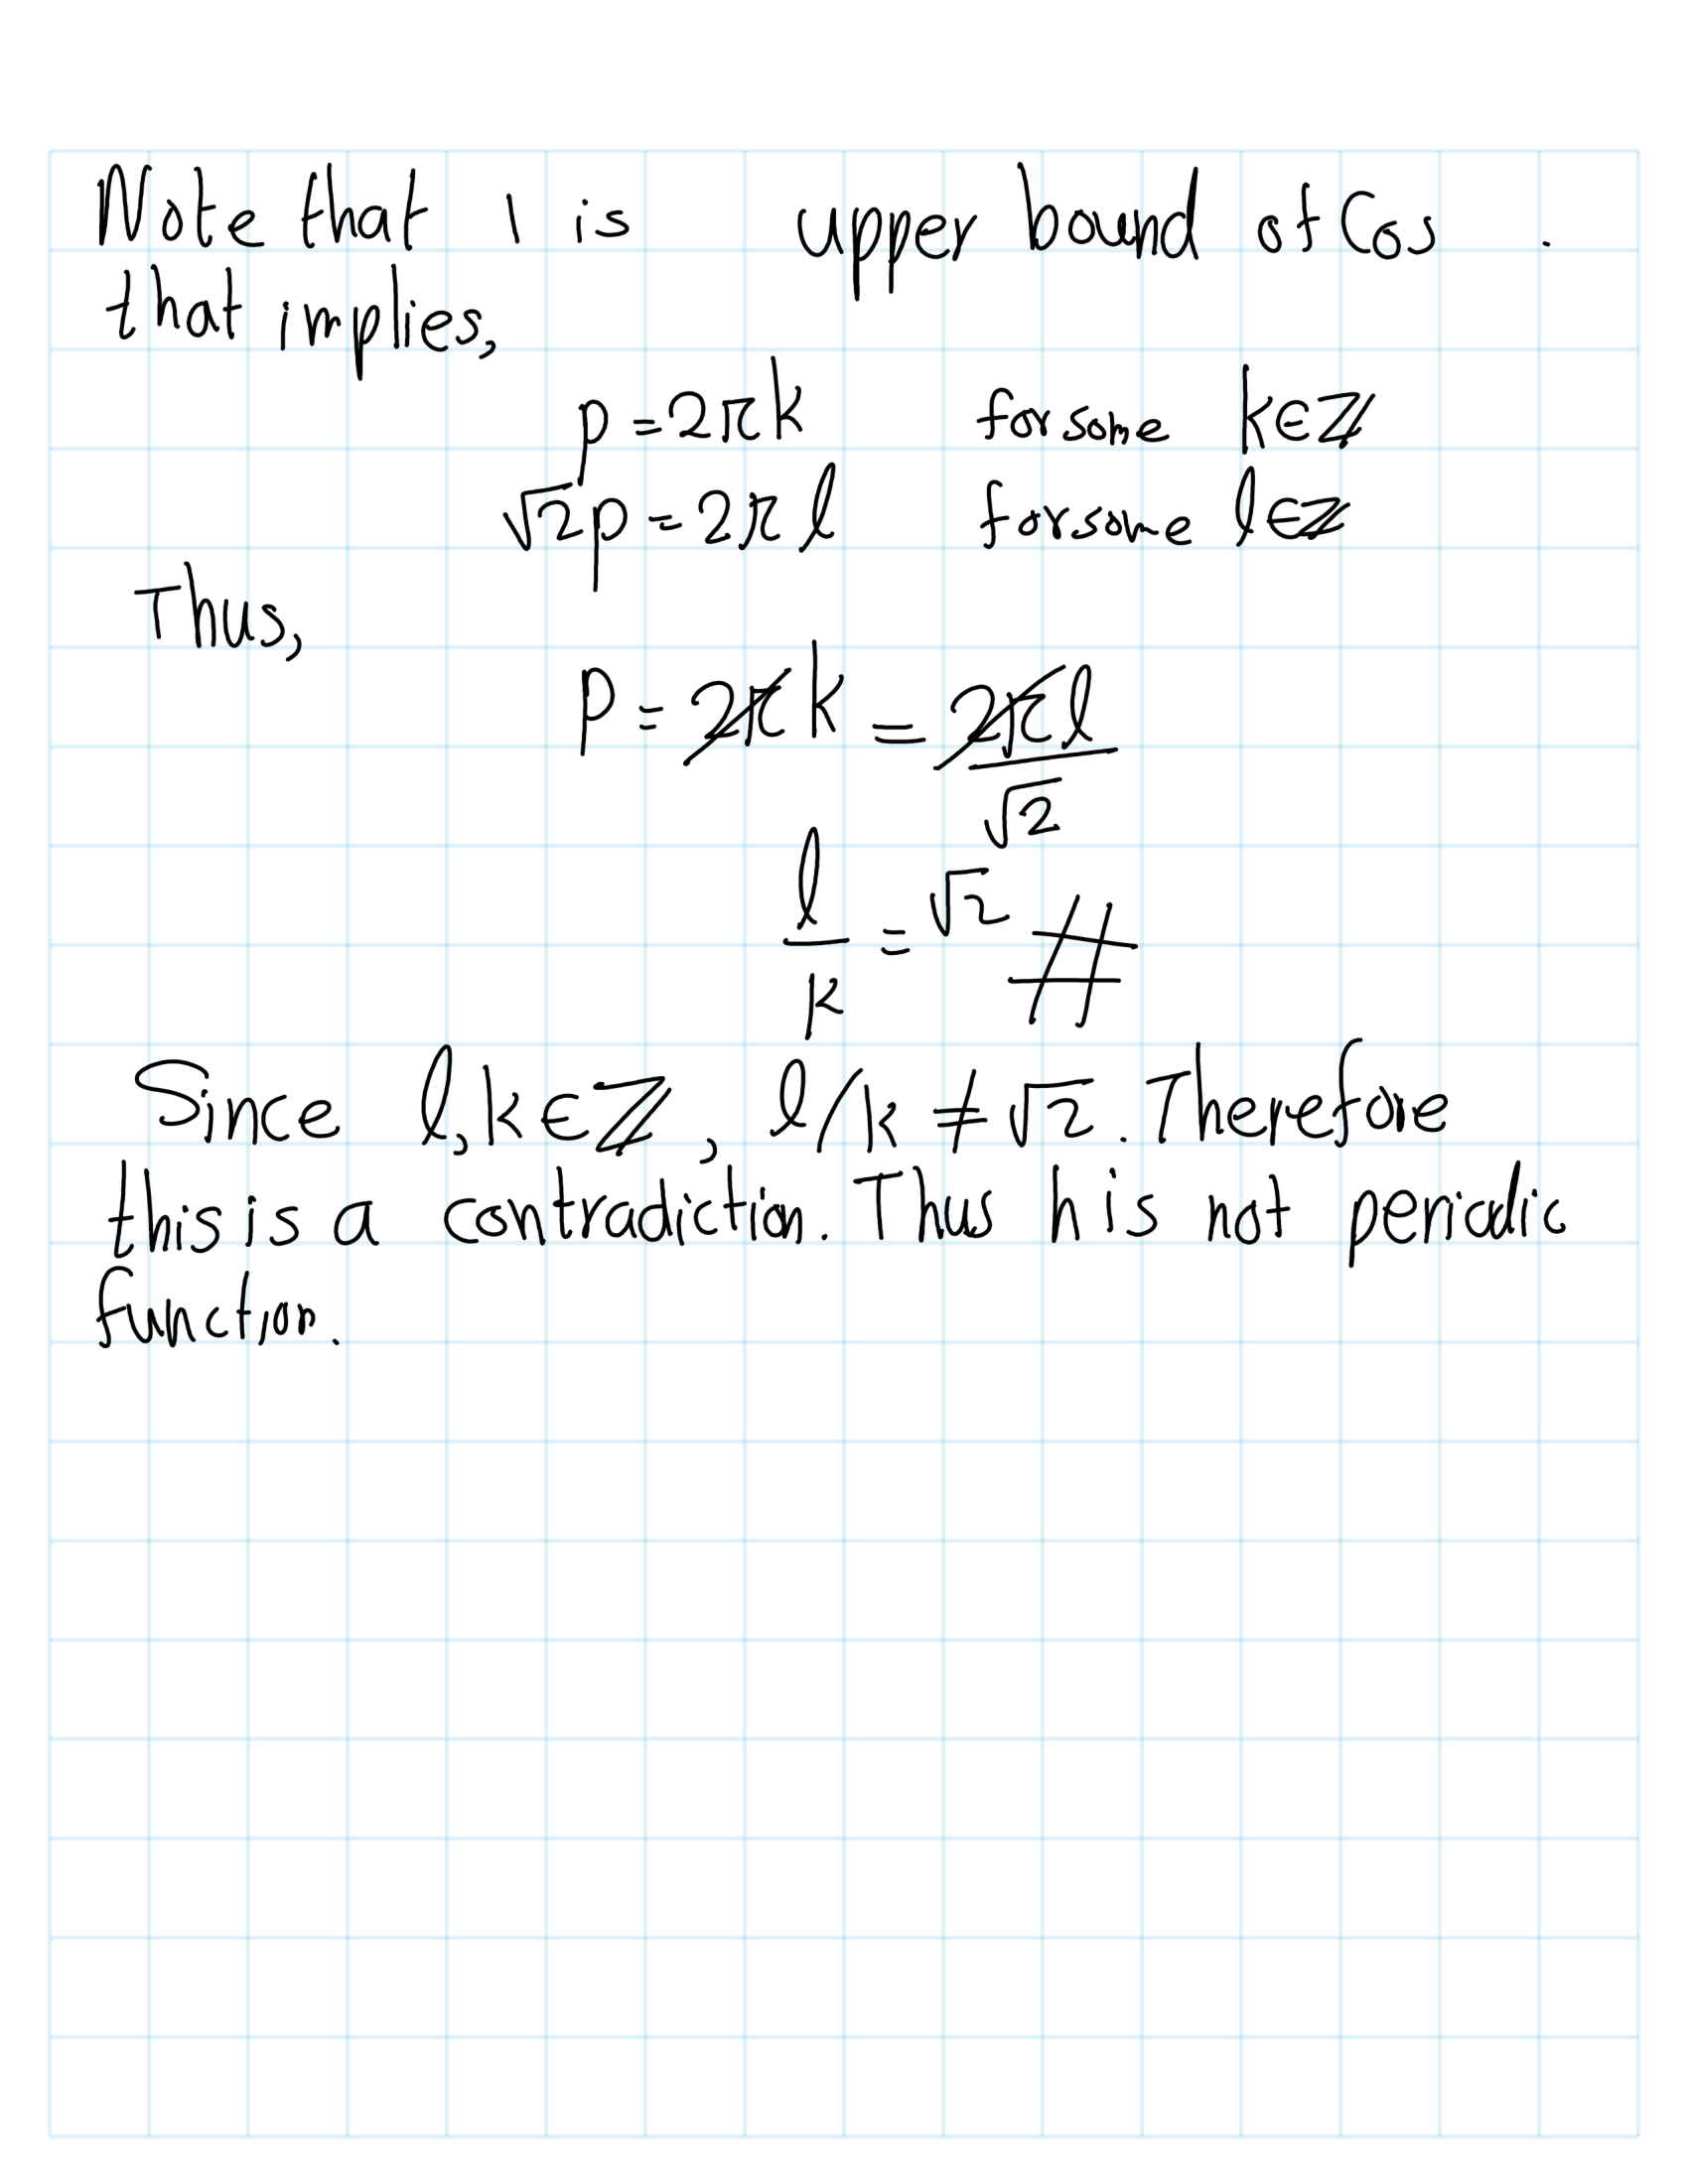 Note that 1 is upper bound of Cos .
that implies,
p = 2πk for some k∈ℤ
√2p = 2πl for some l∈ℤ
Thus,
p = 2πk = 2πl/√2
l/k = √2 #
Since l,k∈ℤ, l/k ≠ √2. Therefore
this is a contradiction. Thus h is not periodic
function.